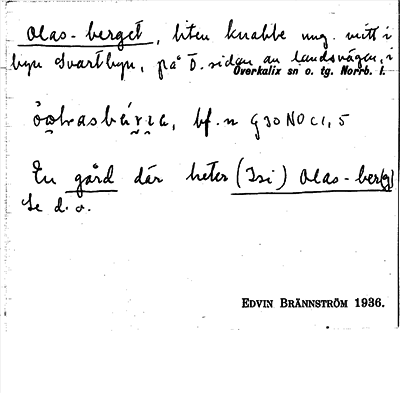 Olas-berget, liten knabbe ung. mitt i
byn Svartbyn, på Ö. sidan av landsvägen, i
Överkalix sn o. tg. Norrb. l.
bf. n G30NOC1,5
En gård där heter (Isi) Olas-ber(g)
Se d. o.
EDVIN BRÄNNSTRÖM 1936.